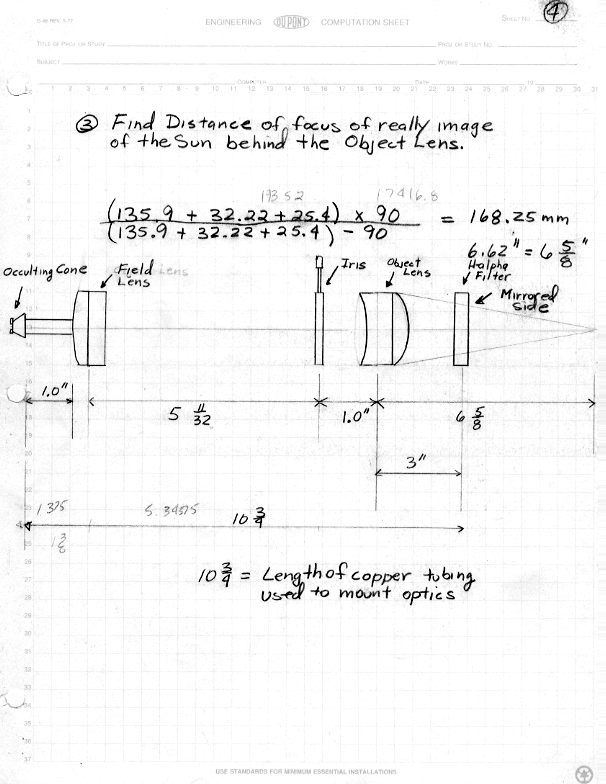 SHEET NO. 4
ENGINEERING DU PONT COMPUTATION SHEET
TITLE OF PROJ. OR STUDY PROJ. OR STUDY NO.
SUBJECT WORKS
COMPUTER DATE 19
1 2 3 4 5 6 7 8 9 10 11 12 13 14 15 16 17 18 19 20 21 22 23 24 25 26 27 28 29 30 31
③ Find Distance of focus of really image
of the Sun behind the Object Lens.
193.52 17416.8
(135.9 + 32.22 + 25.4) x 90
(135.9 + 32.22 + 25.4) - 90
= 168.25 mm
6.62" = 6 5/8"
Occulting Cone
Field Lens
Lens
Iris
Object
Lens
Halpha
Filter
Mirrored
side
1.0"
5 11/32
1.0"
6 5/8
3"
1.375 5.34375 10 3/4
1 3/8
10 3/4 = Length of copper tubing
used to mount optics
USE STANDARDS FOR MINIMUM ESSENTIAL INSTALLATIONS